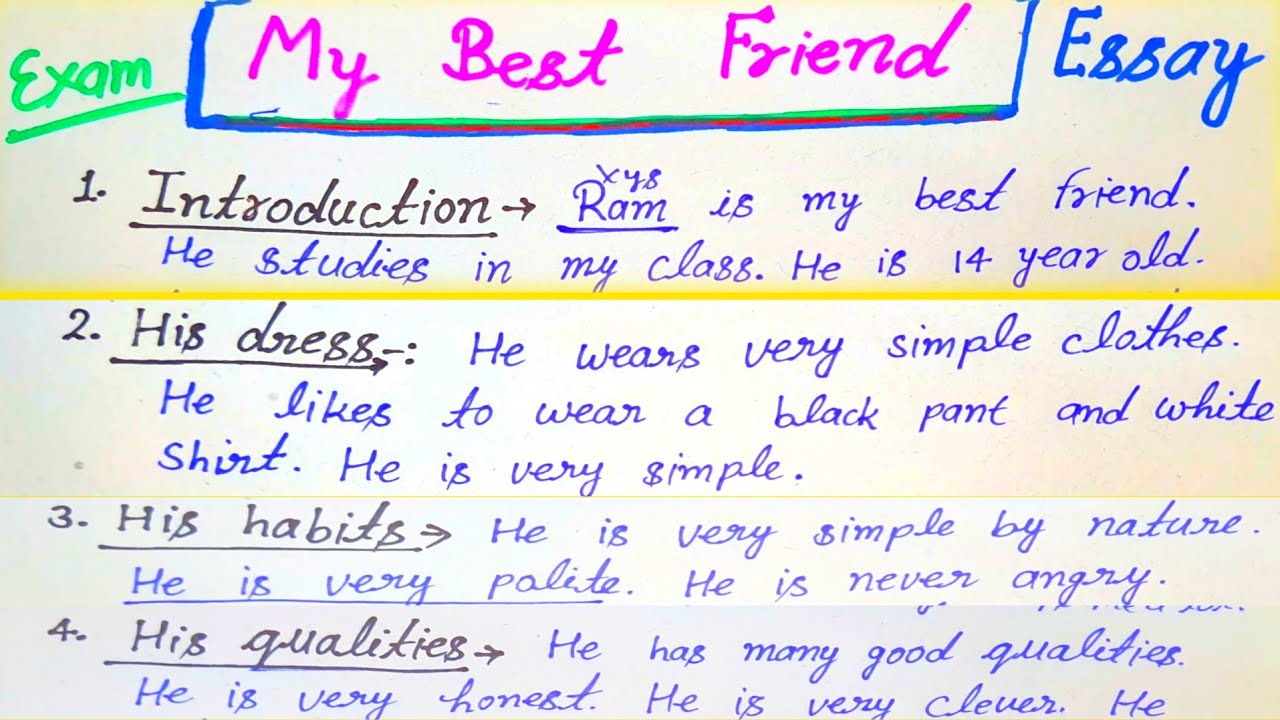 Exam My Best Friend Essay
xys
1. Introduction → Ram is my best friend.
He studies in my class. He is 14 year old.
2. His dress -: He wears very simple clothes.
He likes to wear a black pant and white
Shirt. He is very simple.
3. His habits → He is very simple by nature.
He is very polite. He is never angry.
4. His qualities → He has many good qualities.
He is very honest. He is very clever. He